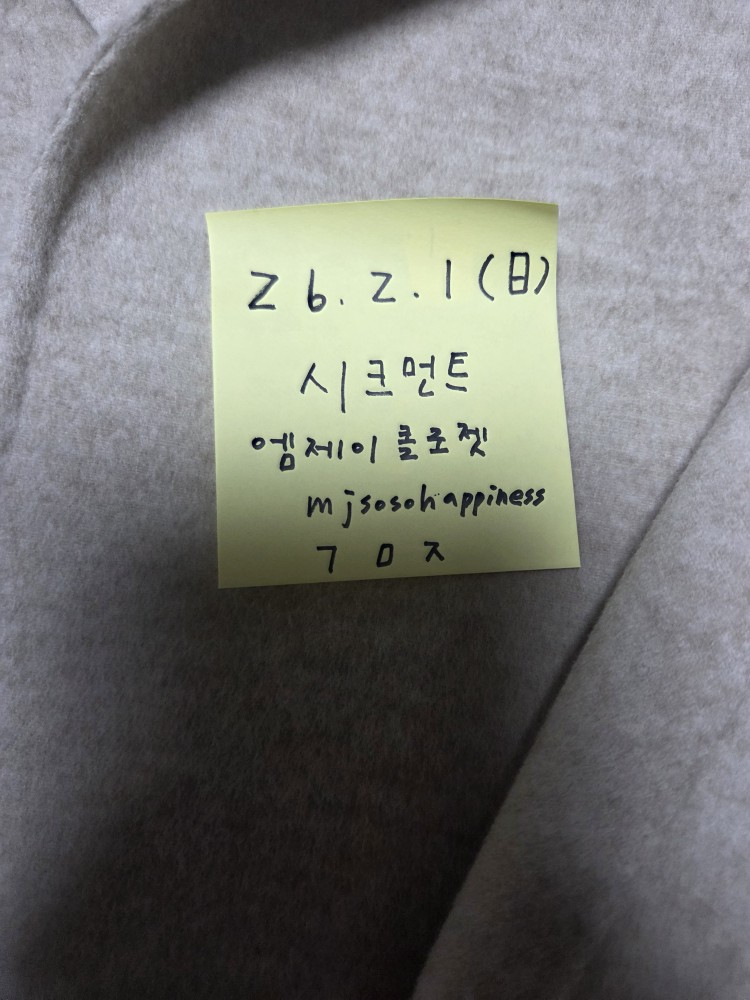 26.2.1(日)
시크먼트
엠제이클로젯
mjsosohappiness
ㄱㅁㅈ